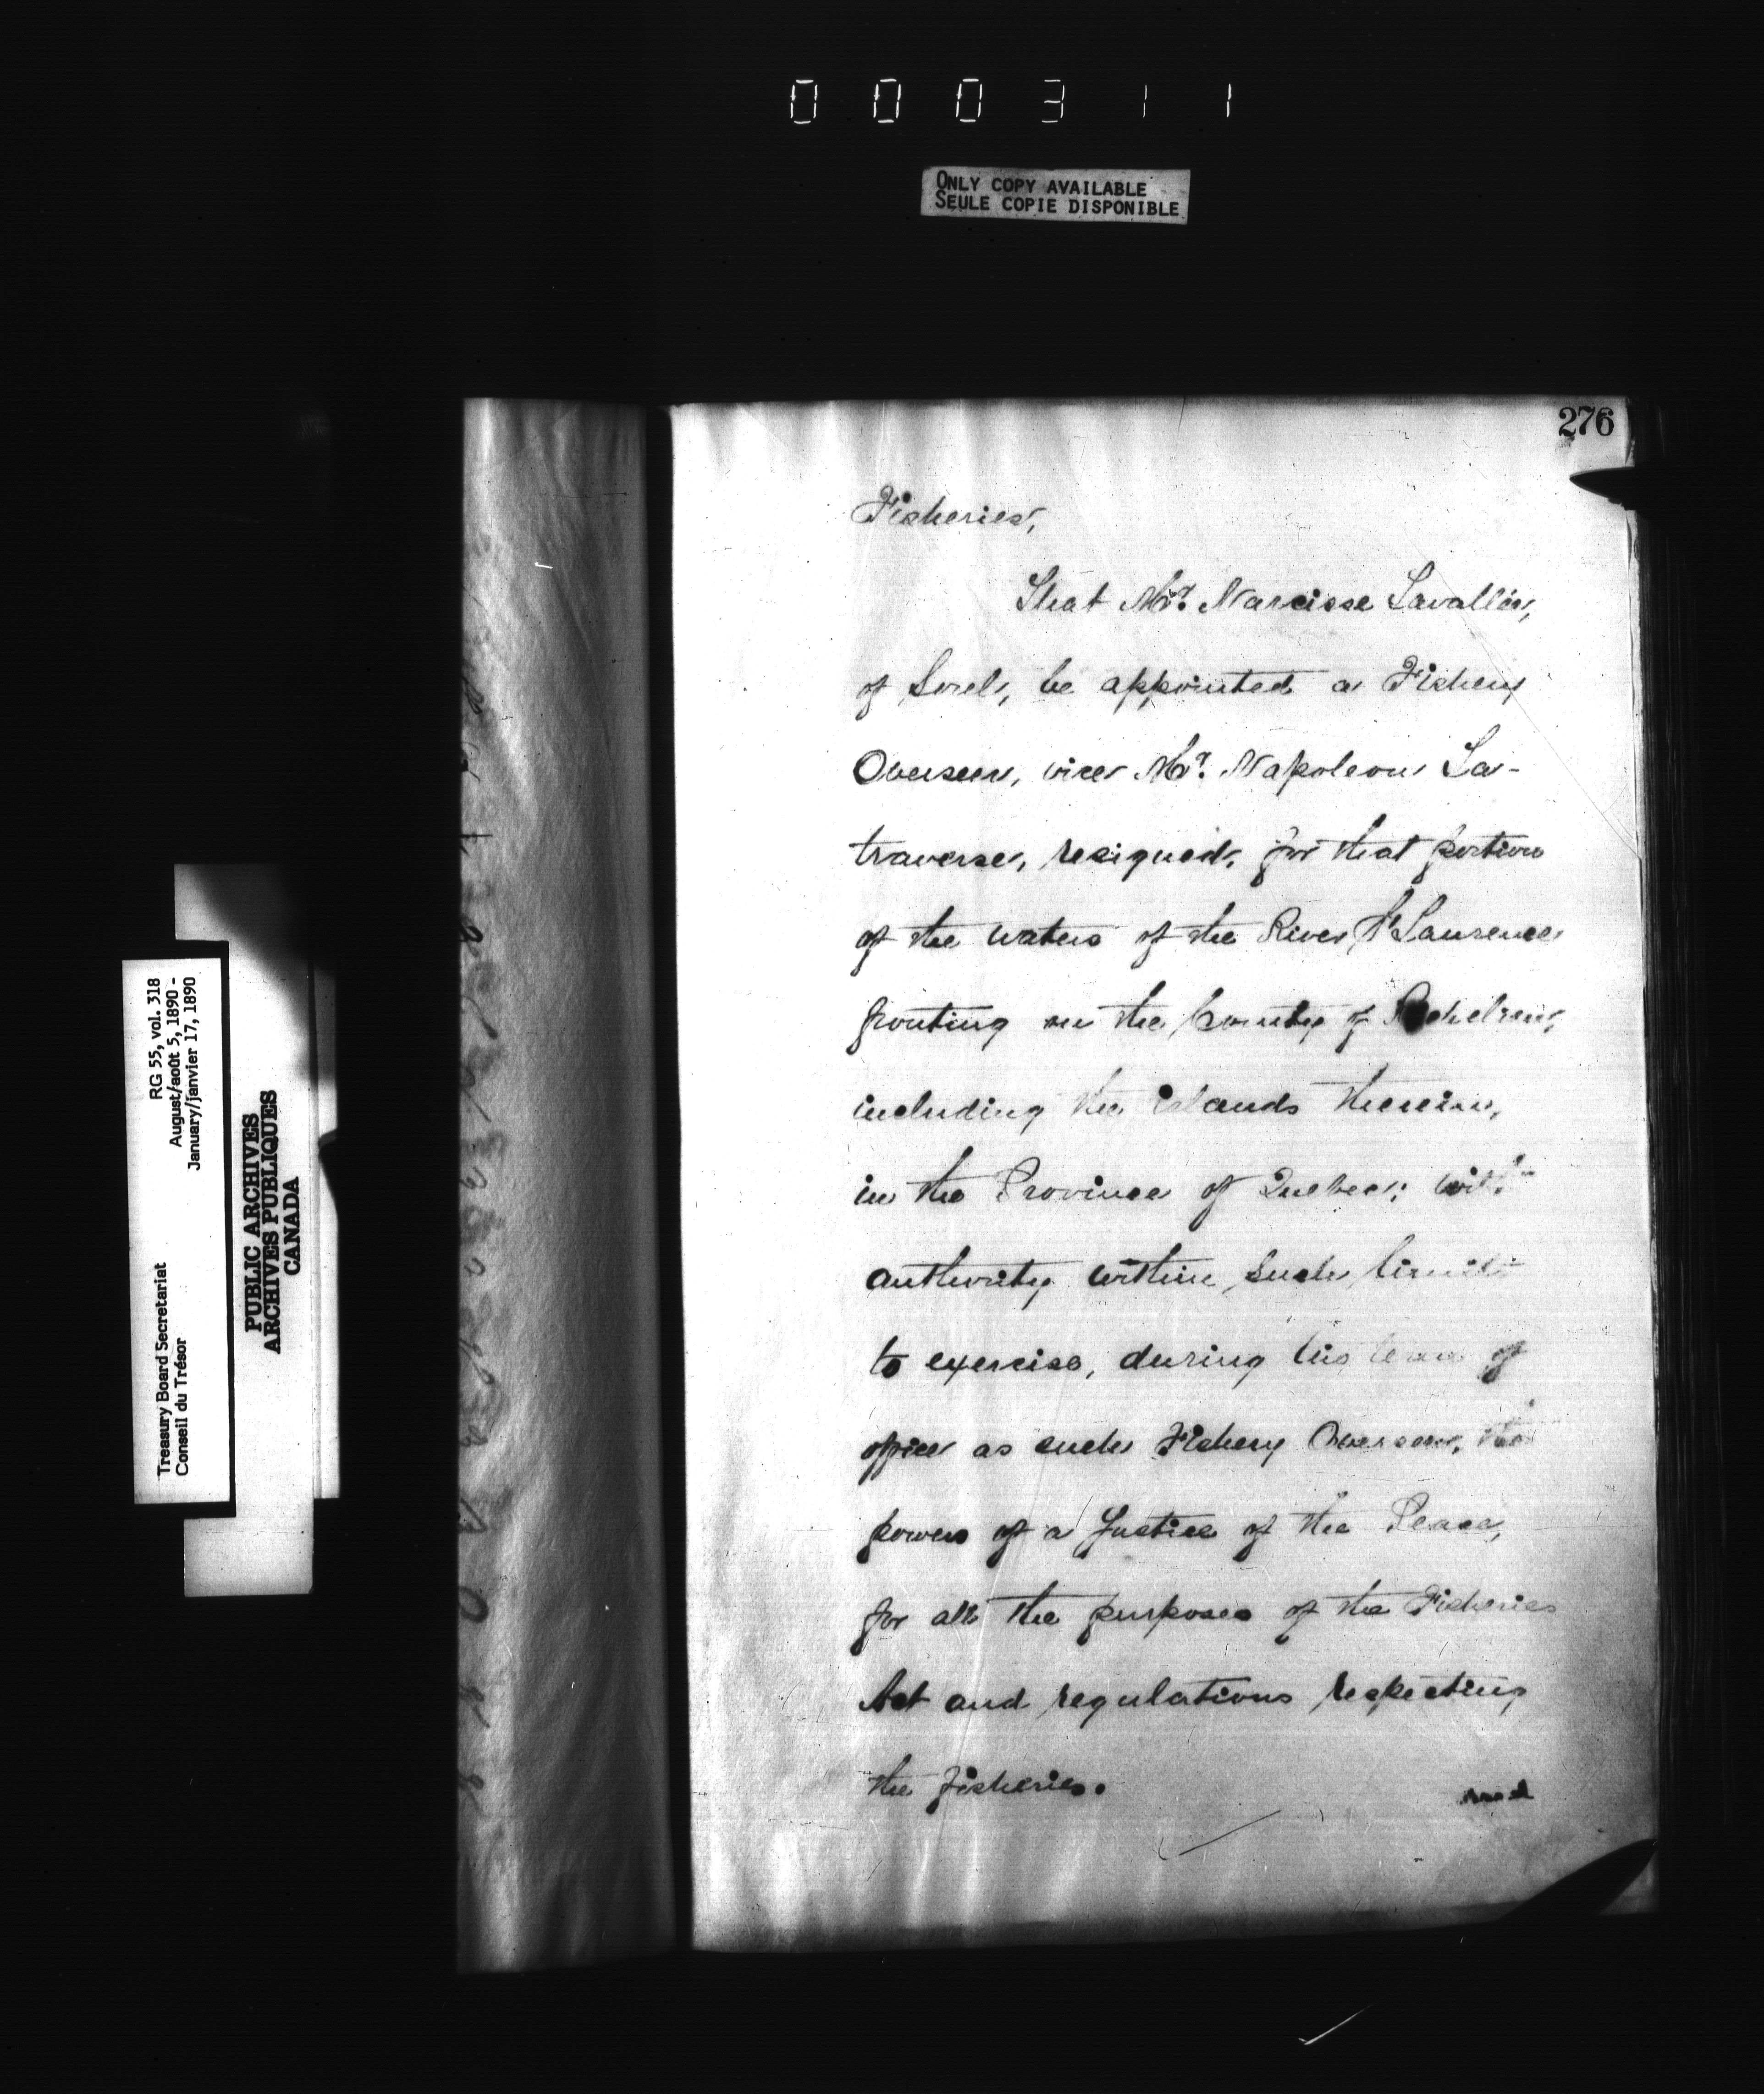 000311
ONLY COPY AVAILABLE
SEULE COPIE DISPONIBLE
276
Fisheries,
That Mr. Narcisse Lavallée,
of Sorel, be appointed a Fishery
Overseer, vice Mr. Napoleon La-
traverse, resigned, for that portion
of the waters of the River St Laurence
fronting on the County of Richelieu,
including the islands therein,
in the Province of Quebec; with
authority within such limits
to exercise, during his term of
office as such Fishery Overseer, the
powers of a Justice of the Peace,
for all the purposes of the Fisheries
Act and regulations respecting
the fisheries.
RG 55, vol. 318
August/août 5, 1890 -
January/janvier 17, 1890
Treasury Board Secretariat
Conseil du Trésor
PUBLIC ARCHIVES
ARCHIVES PUBLIQUES
CANADA